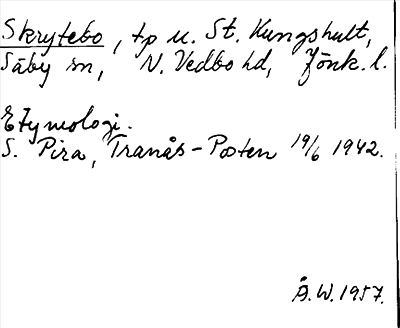 Skrytebo, tp u. St. Kungshult,
Säby sn, N. Vedbo hd, Jönk. l.
Etymologi.
S. Pira, Tranås-Posten 19/6 1942.
Å. W. 1957.